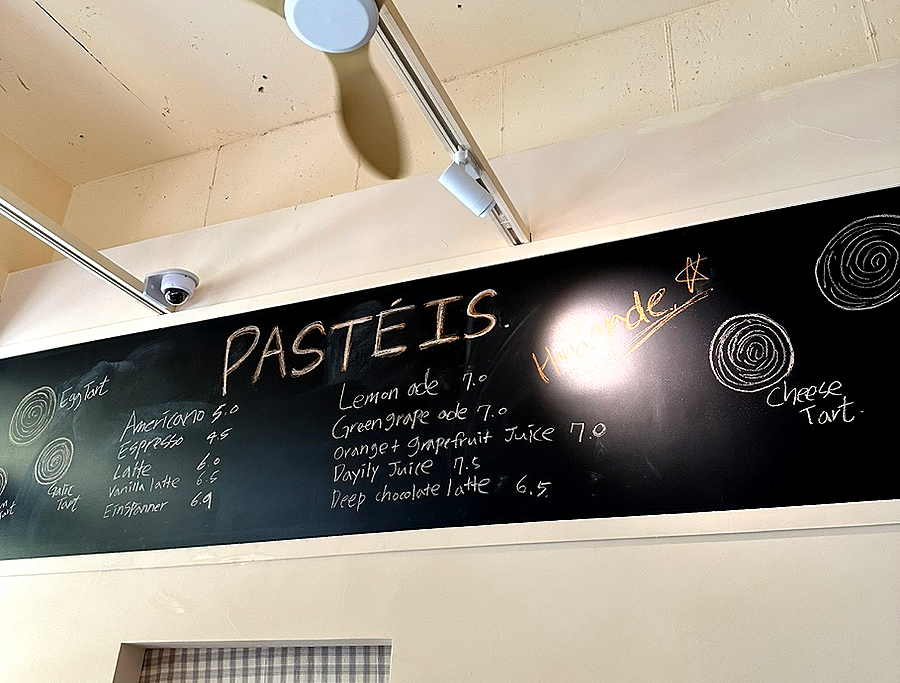 PASTÉIS.
Handmade
Egg Tart
Garlic
Tart
Americano 5.0
Espresso 4.5
Latte 6.0
Vanilla latte 6.5
Einspanner 6.9
Lemon ade 7.0
Green grape ade 7.0
Orange + grapefruit Juice 7.0
Dayily Juice 7.5
Deep chocolate latte 6.5
Cheese
Tart.